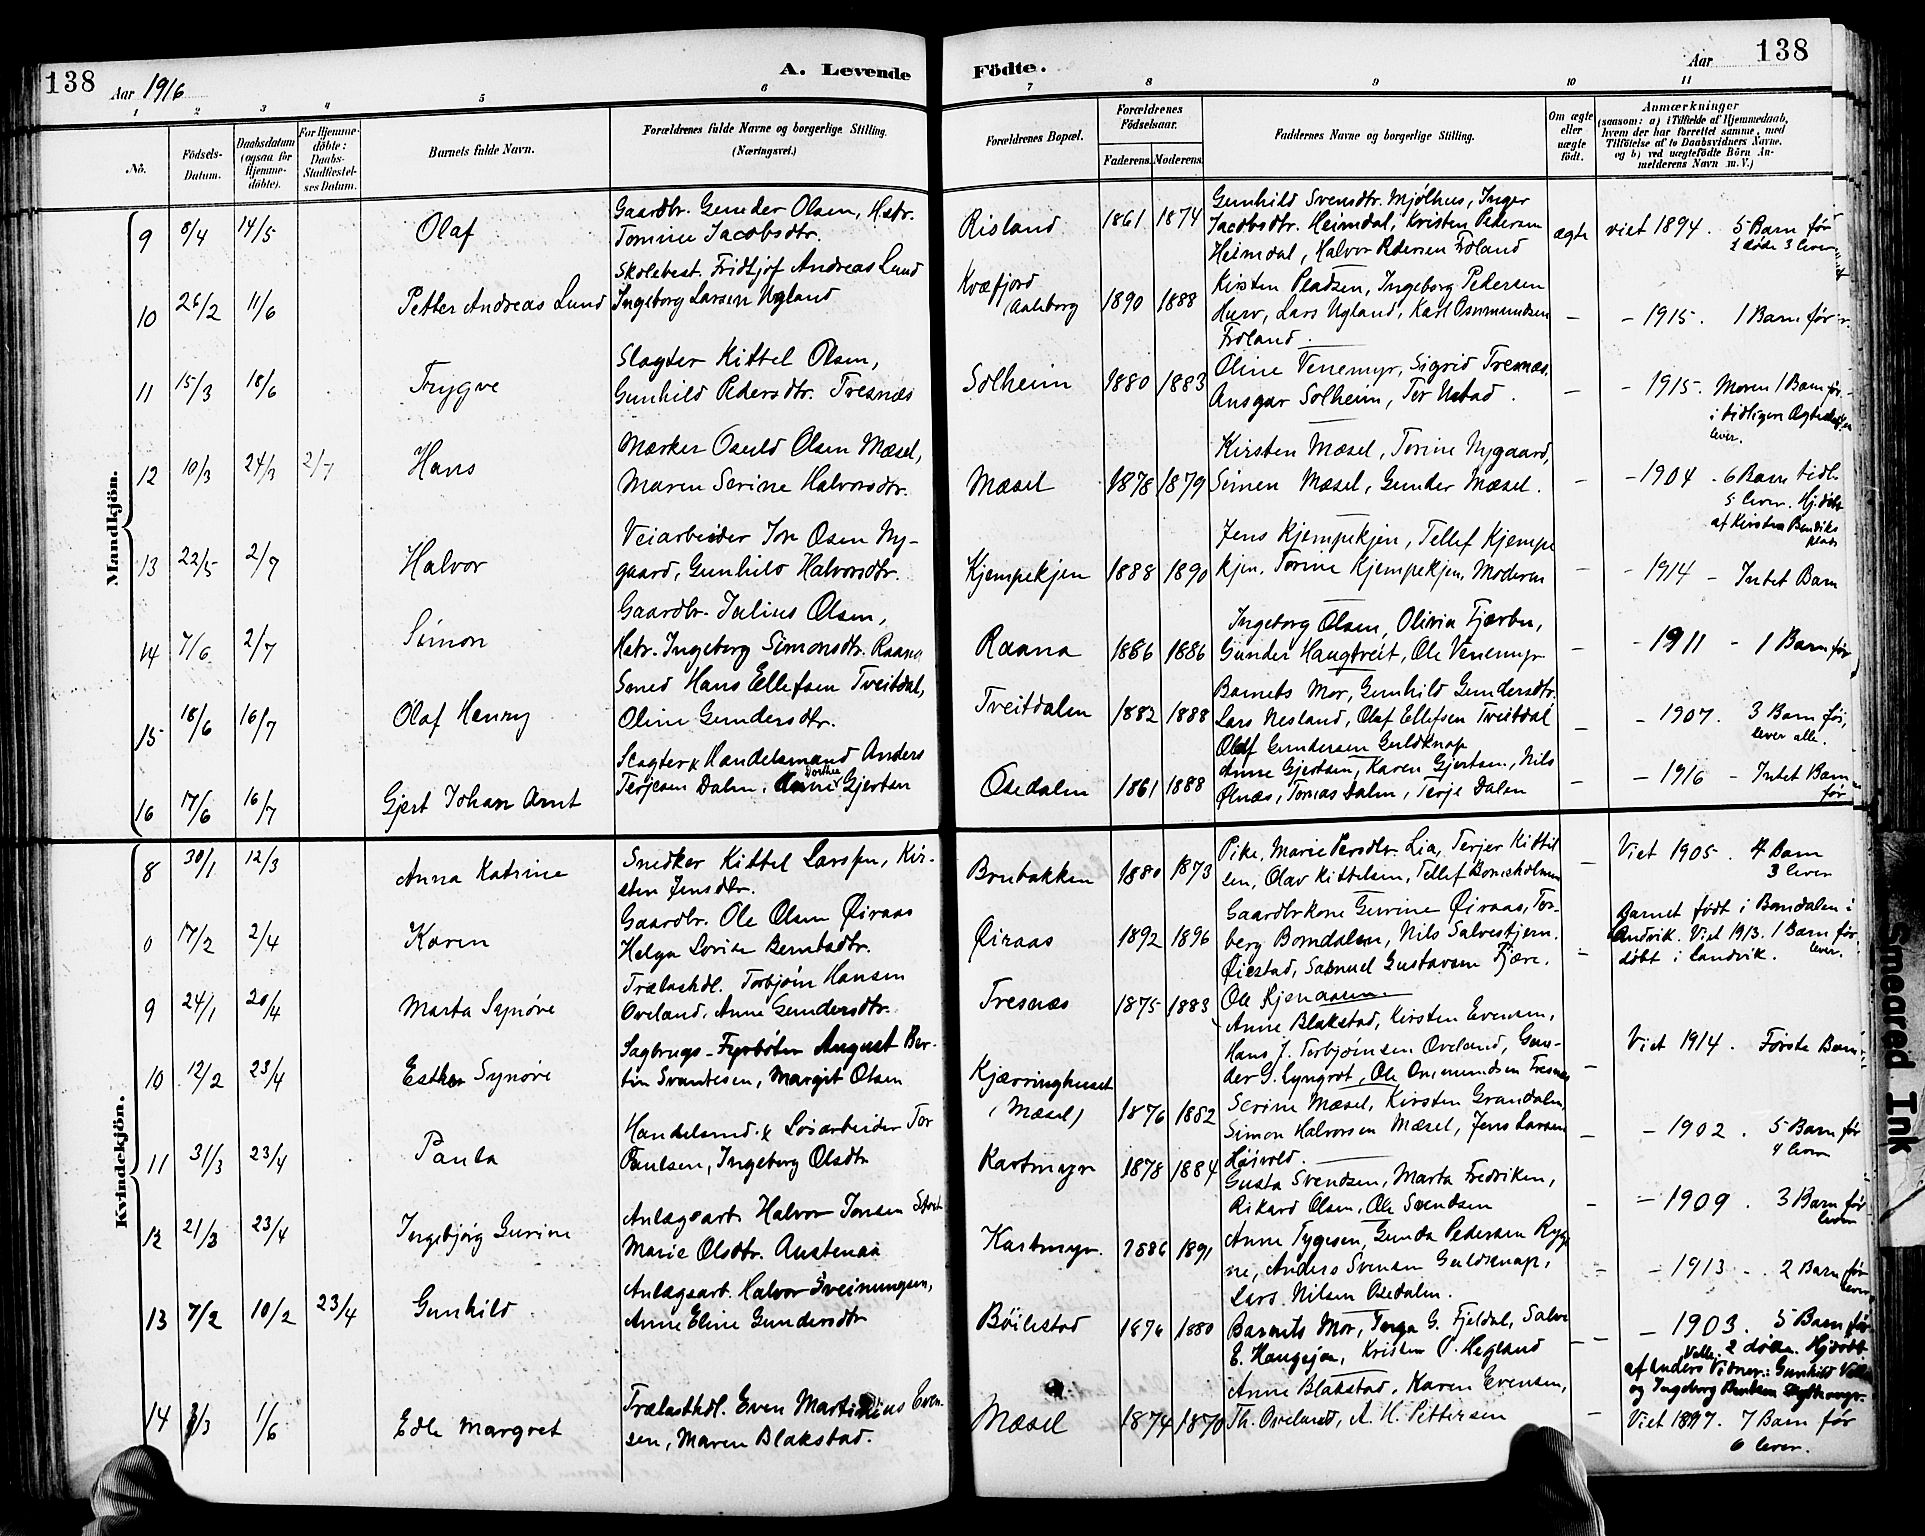 138
Aar 1916
A. Levende
Födte.
Aar
138
1 2 3 4 5 6 7 8 9 10 11
No.
Födsels-
Datum.
Daabsdatum
(ogsaa for
Hjemme-
döbte).
For Hjemme-
döbte:
Daabs-
Stadfæstel-
ses Datum.
Barnets fulde Navn.
Forældrenes fulde Navne og borgerlige Stilling.
(Næringsvei.)
Forældrenes Bopæl.
Forældrenes
Födselsaar.
Faderens. Moderens.
Faddernes Navne og borgerlige Stilling.
Om ægte
eller
uægte
födt.
Anmærkninger
(saasom: a) i Tilfælde af Hjemmedaab,
hvem der har forrettet samme, med
Tilföielse af to Daabsvidners Navne,
og b) ved uægtefödte Börn An-
melderens Navn m. V.)
Mandkjön.
9 8/4 14/5 Olaf
Gaardbr. Gunder Olsen, Hstr.
Tomine Jacobsdtr.
Risland 1861 1874
Gunhild Svendsdtr. Mjølhus, Inger
Jacobsdtr. Heimdal, Kristen Pedersen
Heimdal, Halvor Pedersen Froland
ægte
viet 1894. 5 Barn før
2 døde 3 lever
10 26/2 11/6 Petter Andreas Lund
Skolebest. Fridtjof Andreas Lund
Ingeborg Larsen Nyland
Kvæfjord
Aalsborg 1890 1888
Kirsten Pladsen, Ingeborg Pedersen
Hurv, Lars Nyland, Karl Osmundsen
Froland.
– – 1915. 1 Barn før
11 15/3 18/6 Trygve
Slagter Kittel Olsen,
Gunhild Pedersdtr. Tresnæs
Solheim 1880 1883
Oline Venemyr, Sigrid Tresnæs.
Ansgar Solheim, Tor Ustad.
– – 1915. Moren 1 Barn før
i tidligere Ægteskab
lever.
12 10/3 24/3 2/7 Hans
Mærker Osuld Olsen Mæsel,
Maren Serine Halvorsdtr.
Mæsel 1878 1879
Kirsten Mæsel, Torine Nygaard,
Simen Mæsel, Gunder Mæsel.
– – 1904. 6 Barn tidl.
5 lever. Hj.døbt
af Kirsten Bendiks
plads
13 22/5 2/7 Halvor
Veiarbeider Jon Osen Ny-
gaard, Gunhild Halvorsdtr.
Kjempekjen 1888 1890
Jens Kjempekjen, Tellef Kjempe
kjen, Torine Kjempekjen, Moderen
– – 1914 – Intet Barn
14 7/6 2/7 Simon
Gaardbr. Julius Olsen,
Hstr. Ingeborg Simonsdtr. Raana
Raana 1886 1886
Ingeborg Olsen, Olivia Fjærbu,
Gunder Haugtveit, Ole Venemyr
– – 1911 – 1 Barn før
15 18/6 16/7 Olaf Henry
Smed Hans Ellefsen Tveitdal,
Oline Gundersdtr.
Tveitdalen 1882 1888
Barnets Mor, Gunhild Gundersdtr.
Lars Nesland, Olaf Ellefsen Tveitdal
Olaf Gundersen Guldknap
– – 1907. 3 Barn før,
lever alle.
16 17/6 16/7 Gjert Johan Arnt
Slagter & Handelsmand Anders
Terjesen Dalen, Anne Dorthea Gjertsen
Osedalen 1861 1888
Anne Gjertsen, Karen Gjertsen, Nils
Ølnæs, Tomas Dalen, Terje Dalen
– – 1916 – Intet Barn
før
Kvindekjön.
8 30/1 12/3 Anna Katrine
Snedker Kittel Larssen, Kir-
sten Jensdtr.
Brubakken 1880 1873
Pike, Marie Persdtr. Lia, Terjer Kittil
sen, Olav Kittelsen, Tellef Bomsholmen
– Viet 1905. 4 Barn
3 lever
0 17/2 2/4 Karen
Gaardbr. Ole Olsen Øiraas
Helga Lovise Berntsdtr.
Øiraas 1892 1896
Gaardbrkone Gurine Øiraas, Tor-
berg Bomdalen, Nils Salvestjern.
Øiestad, Samuel Gustavsen Fjære.
– Barnet født i Bomdalen i
Landvik. Viet 1913. 1 Barn før.
døbt i Landvik. lever.
9 24/1 20/4 Marta Synøve
Trælasthdl. Torbjørn Hansen
Oveland, Anne Gundersdtr.
Tresnæs 1875 1883
Ole Kjenaasen.
Anne Blakstad, Kirsten Evensen,
Hans J. Torbjørnsen Oveland, Gun-
der G. Lyngrot, Ole Ommundsen Tresnæs
– Viet 1914. Første Barn
10 12/2 23/4 Esther Synøve
Sagbrugs-Fyrbøter August Ber-
tin Svantesen, Margit Olsen
Kjærringhuset
(Mæsel) 1876 1882
Serine Mæsel, Kirsten Grandalen,
Simon Halvorsen Mæsel, Jens Larsen
Høivold.
– – 1902. 5 Barn før
4 lever
11 31/3 23/4 Paula
Handelsmd. & Løsarbeider Tor
Paulsen, Ingeborg Olsdtr
Kartmyr 1878 1884
Gusta Svendsen, Marta Fredriken,
Rikard Olsen, Ole Svendsen
– – 1909. 3 Barn før
lever
12 21/3 23/4 Ingebjørg Gurine
Anlægsarb. Halvor Jonsen
Marie Olsdtr. Austenaa
Kartmyr. 1886 1891
Anne Tygesen, Gunda Pedersen Ryge
ne, Anders Svensen Guldsknap,
Lars Nilsen Osedalen.
– – 1913 – . 2 Barn før
lever
13 7/2 10/2 23/4 Gunhild
Anlægsarb. Halvor Sveinungsen,
Anne Eline Gundersdtr
Bøilestad 1876 1880
Barnets Mor, Torga G. Fjeldal, Salve
E. Haugsjen, Kristen P. Hegland
– – 1903. 5 Barn før
2 døde. Hjdøbt
af Anders Velle. Vidner: Gunhild Velle
og Ingeborg
14 3/3 1/6 Edle Margret
Trælasthdl. Even Martinius Even-
sen, Maren Blakstad.
Mæsel 1874 1870
Anne Blakstad, Karen Evensen,
Th. Oveland, A. H. Pettersen
– Viet 1897. 7 Barn før
6 lever.
Smeared Ink